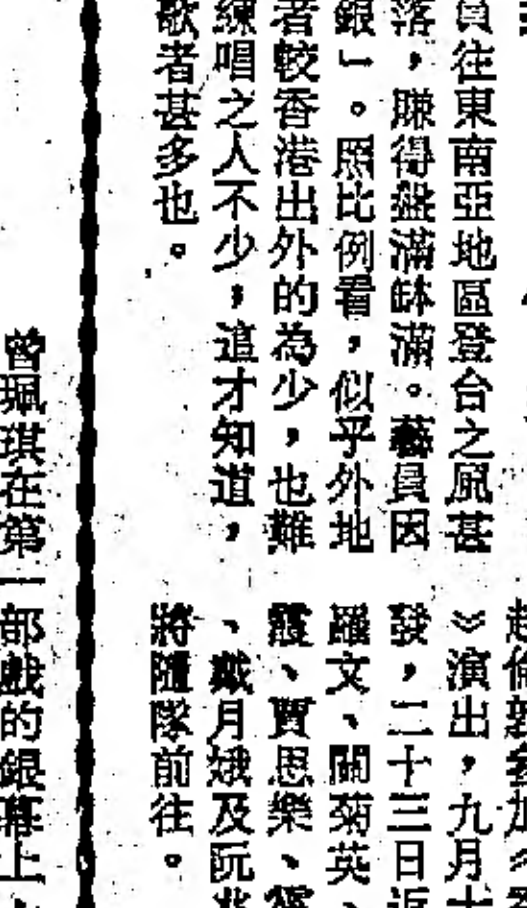 員往東南亞地區登台之風甚
落，賺得盤滿缽滿。藝員因
銀」。照比例看，似乎外地
者較香港出外的為少，也難
練唱之人不少，這才知道，
歌者甚多也。
》演出，九月十
發，二十三日返
羅文、關菊英、
霞、賈思樂、
、戴月娥及阮兆
將隨隊前往。
曾珮琪在第一部戲的銀幕上，